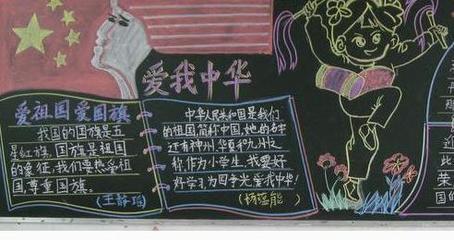 爱我中华
爱祖国爱国旗
我国的国旗是五
星红旗,国旗是祖国
的象征,我们要热爱祖
国尊重国旗。
中华人民共和国是我们
的祖国,简称中国,她的名字
还有神州、华夏和九州。
作为小学生,我要好
好学习,为国争光,爱我中华!